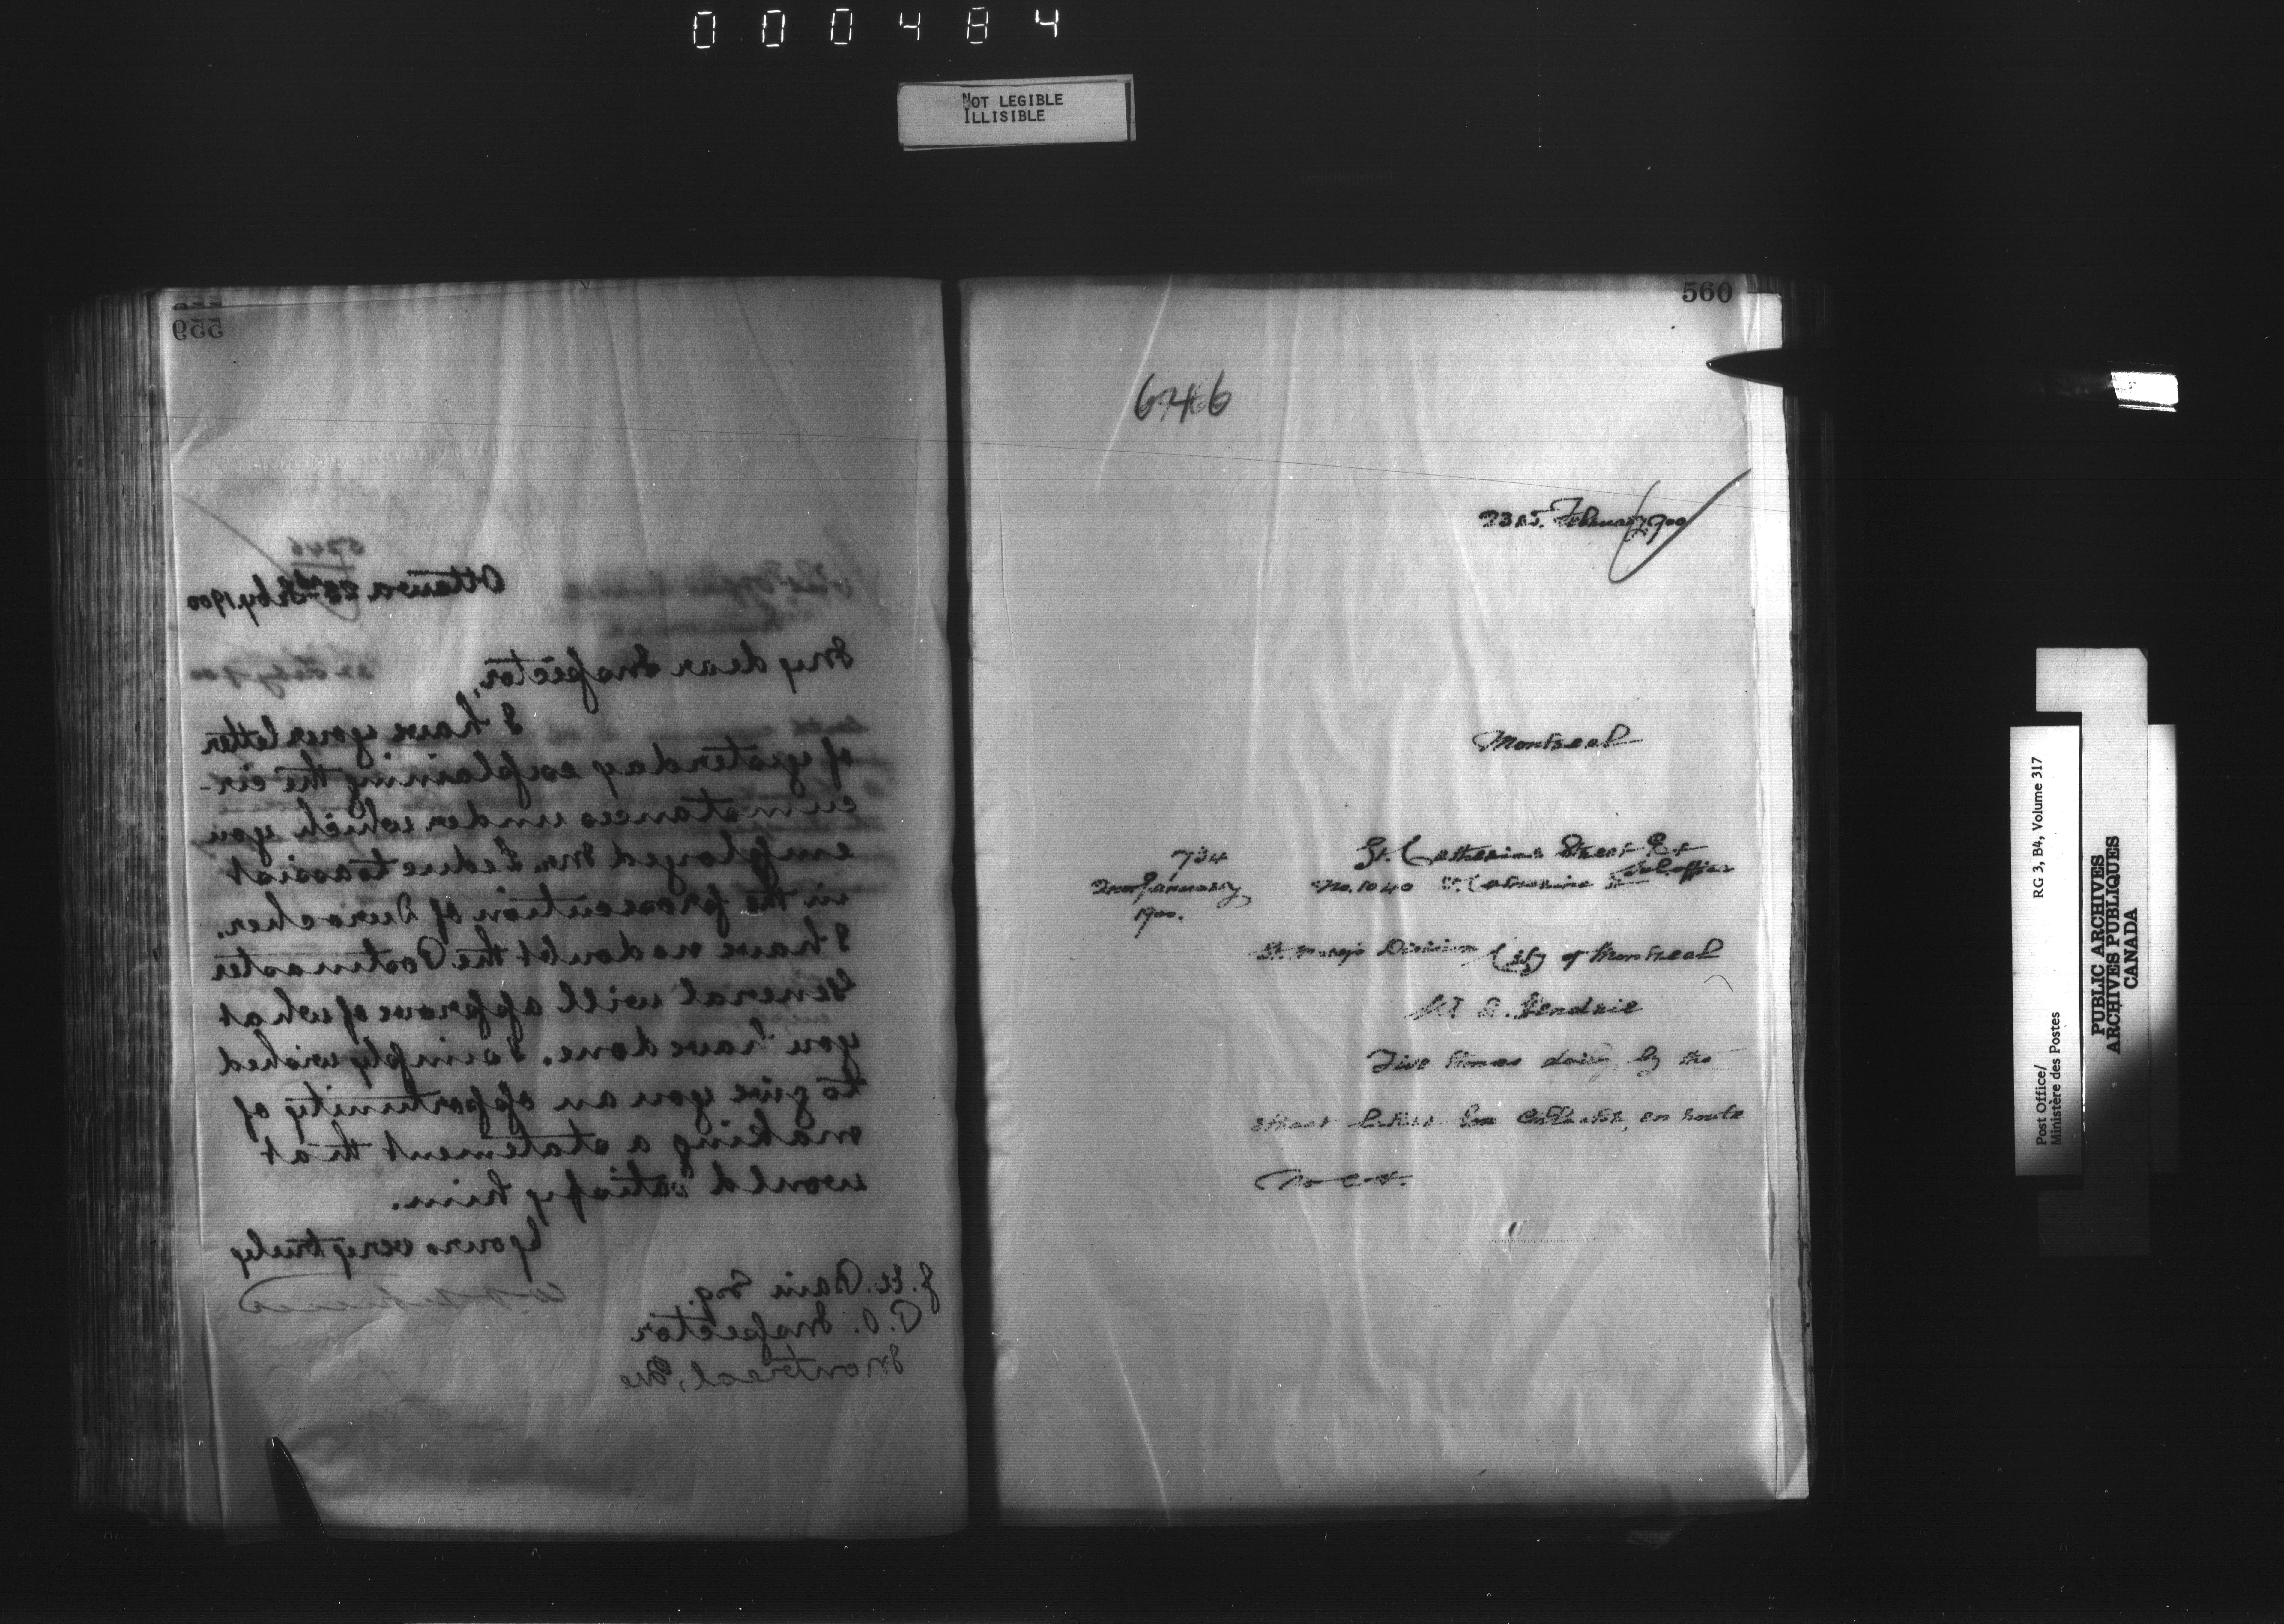 000484
NOT LEGIBLE
ILLISIBLE
559
5746
Ottawa 23rd Feby 1900
My dear Inspector,
I have your letter
of yesterday explaining the cir-
cumstances under which you
employed Mr. Leduc to assist
in the prosecution of Durocher.
I have no doubt the Postmaster
General will approve of what
you have done. I simply wished
to give you an opportunity of
making a statement that
would satisfy him.
Yours very truly
J. H. Bain Esq.
P.O. Inspector
Montreal, Que
560
6746
23rd February 1900
Montreal
734
January
1900.
St. Catherine Street East
Sub office
No. 1040 St. Catherine St
St. Mary's Division City of Montreal
Hendrie
Five times daily, by the
street letter box collector, en route
No cost.
Post Office/
Ministère des Postes
RG 3, B4, Volume 317
PUBLIC ARCHIVES
ARCHIVES PUBLIQUES
CANADA